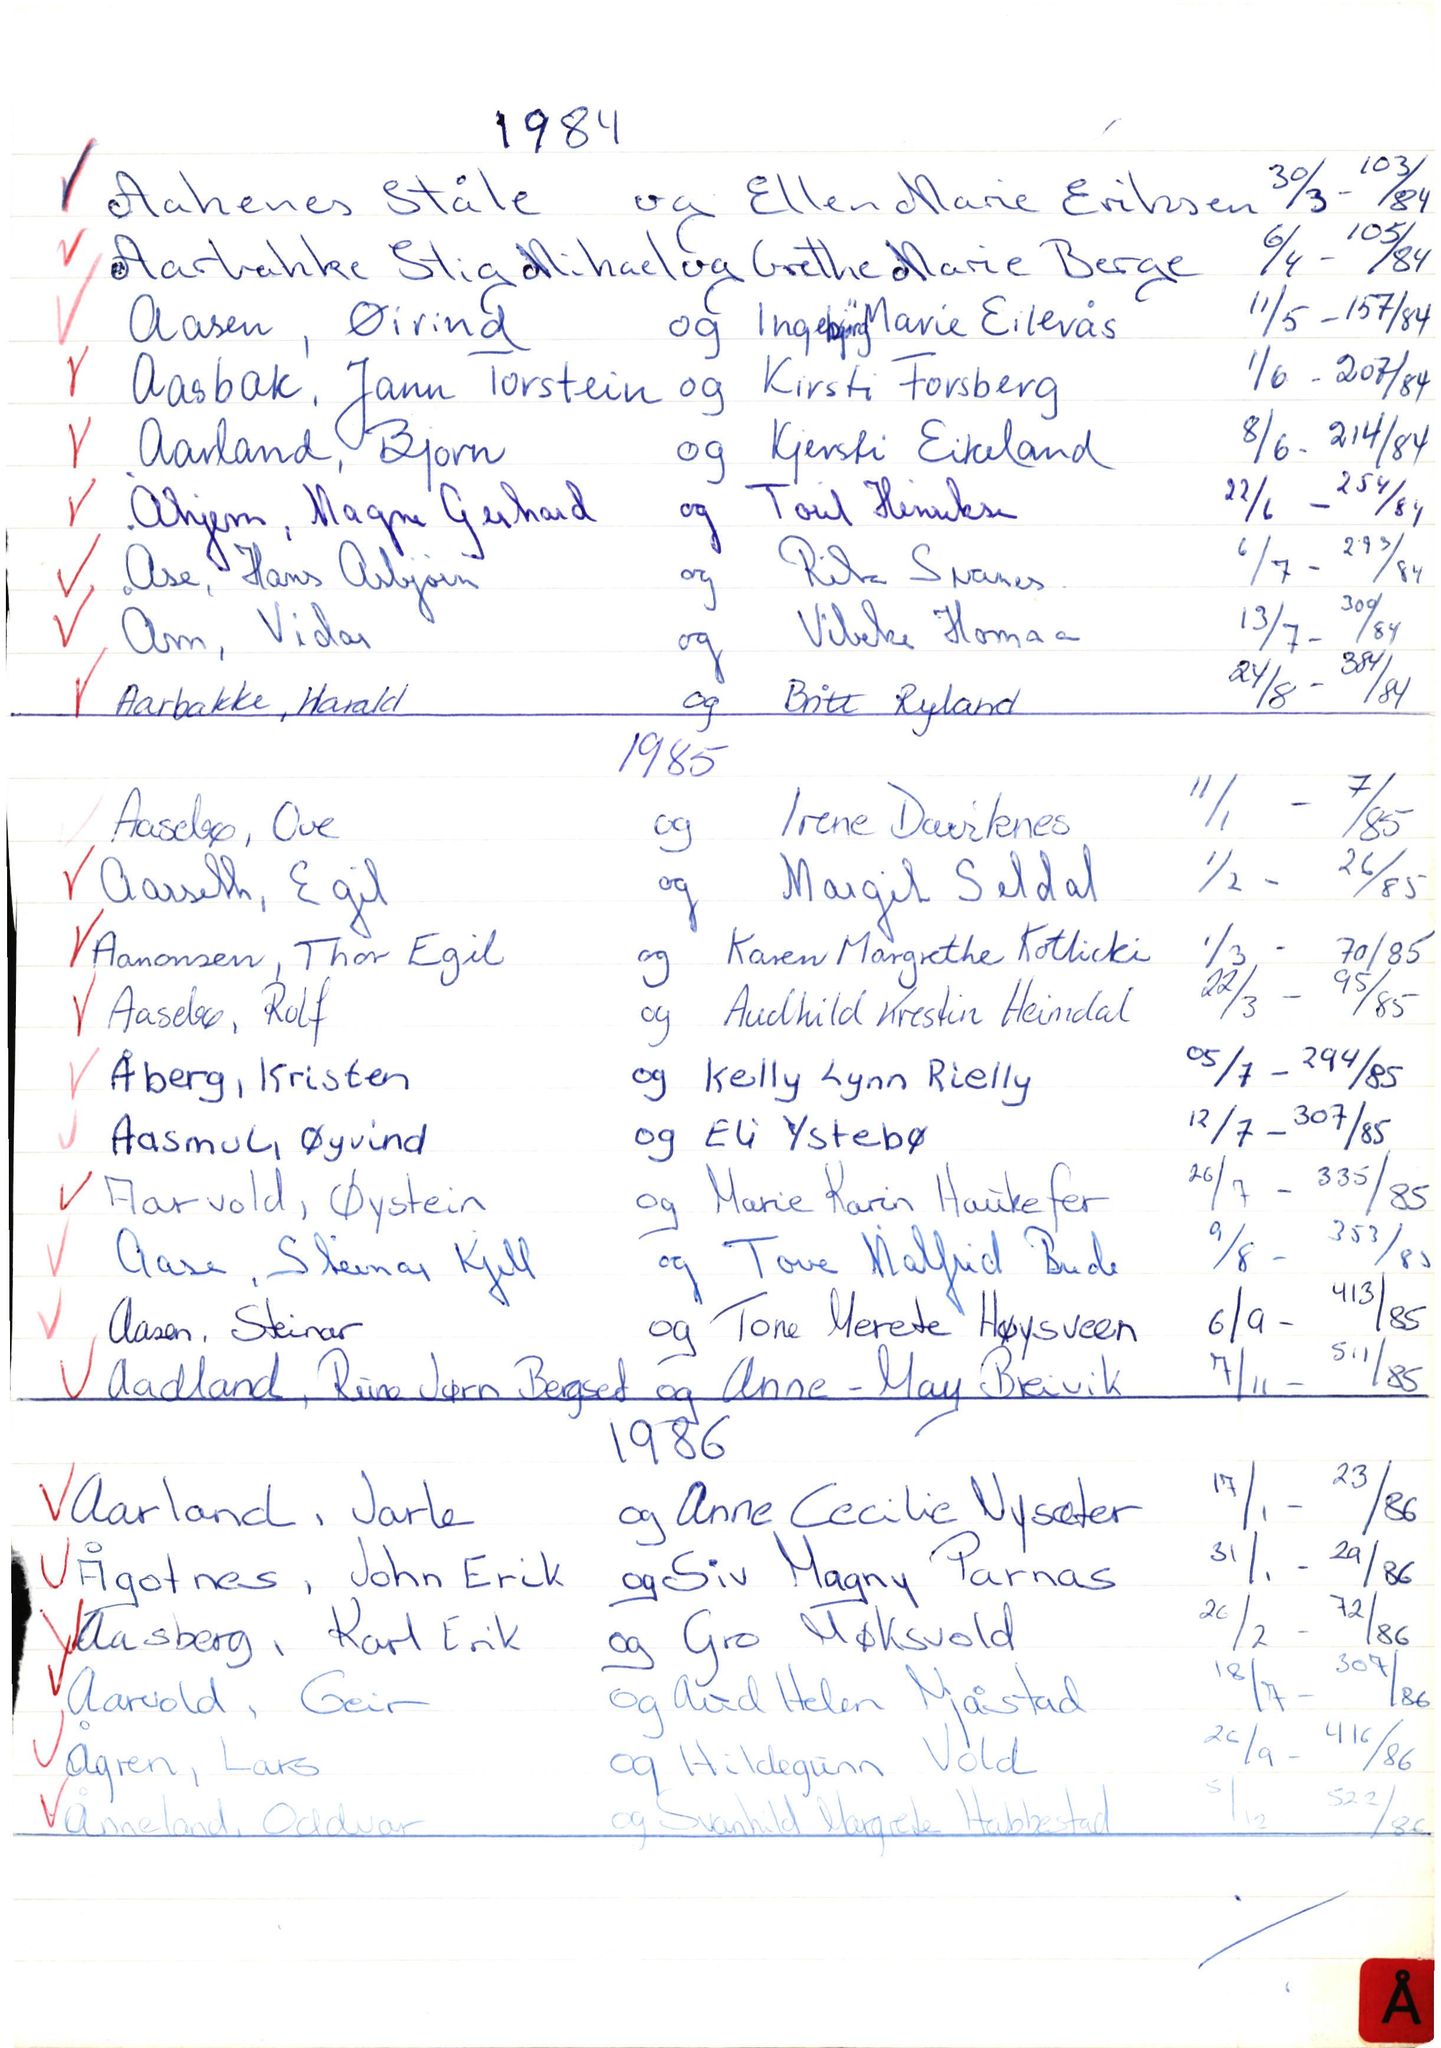 1984
Aahenes Ståle og Ellen Marie Eriksen 30/3 - 103/84
Aarbakke Stig Mihael og Grethe Marie Berge 6/4 - 105/84
Aasen, Øivind og Ingebjørg Marie Eilevås 11/5 - 157/84
Aasbak, Jann Torstein og Kirsti Forsberg 1/6 - 207/84
Aarland, Bjørn og Kjersti Eikeland 8/6 - 214/84
Magne Gerhard og Toril Henriksen 22/6 - 254/84
Åse, Hans Asbjørn og Rita Svanes 6/7 - 293/84
Vidar og Vibeke Homaa 13/7 - 309/84
Aarbakke, Harald og Britt Ryland 24/8 - 384/84
1985
Aasebø, Ove og Irene 11/1 - 7/85
Aarseth, Egil og Margit Seldal 1/2 - 26/85
Aanonsen, Thor Egil og Karen Margrethe Kotlicki 1/3 - 70/85
Aasebø, Rolf og Audhild Krestin Heimdal 22/3 - 95/85
Åberg, Kristen og Kelly Lynn Rielly 05/7 - 294/85
Aasmul, Øyvind og Eli Ystebø 12/7 - 307/85
Aarvold, Øystein og Marie Karin 26/7 - 335/85
Aase, Steinar Kjell og Tove Målfrid Bude 9/8 - 353/85
Aasen, Steinar og Tone Merete Høysveen 6/9 - 413/85
Aadland, Rune Jørn Bergset og Anne-May Breivik 7/11 - 511/85
1986
Aarland, Jarle og Anne Cecilie Nysæter 17/1 - 23/86
Ågotnes, John Erik og Siv Magny Parnas 31/1 - 29/86
Aasberg, Karl Erik og Gro Møksvold 26/2 - 72/86
Aarvold, Geir og Aud Helen Mjåstad 18/7 - 307/86
Ågren, Lars og Hildegunn Vold 26/9 - 416/86
Ånneland, Oddvar og Svanhild Margrete Habbestad 5/12 522/86
Å